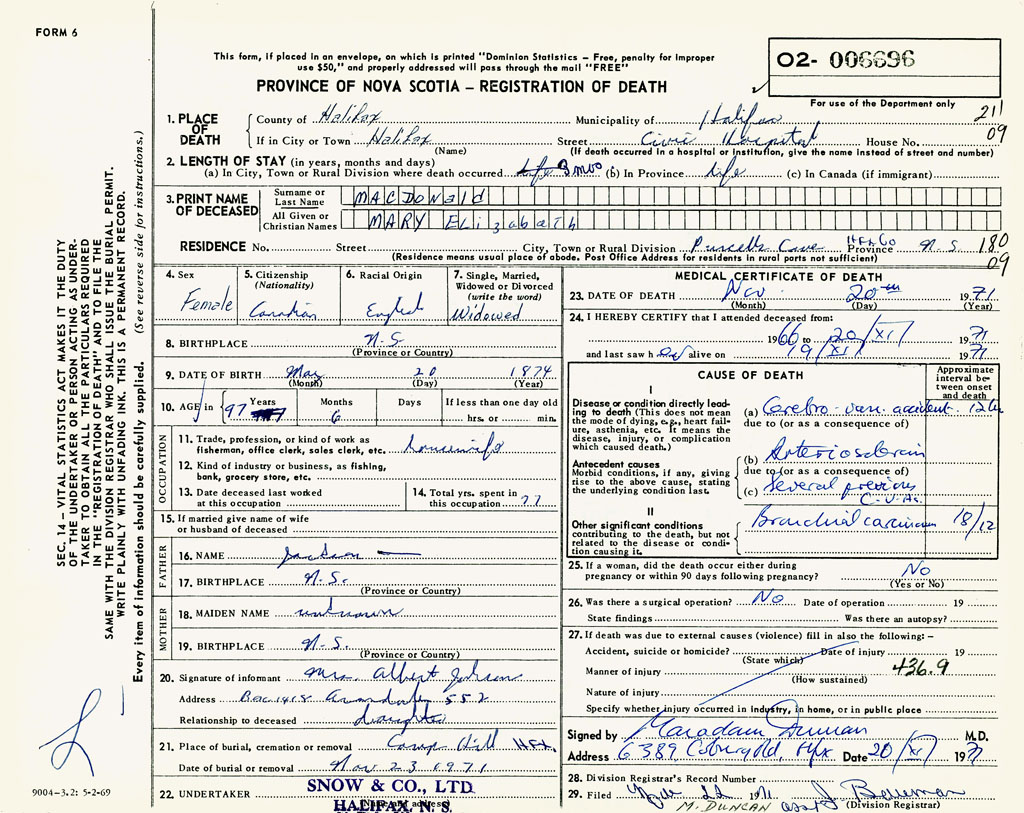 FORM 6
This form, if placed in an envelope, on which is printed "Dominion Statistics – Free, penalty for improper
use $50," and properly addressed will pass through the mail "FREE"
PROVINCE OF NOVA SCOTIA – REGISTRATION OF DEATH
02- 006696
For use of the Department only
21
09
SEC. 14 – VITAL STATISTICS ACT MAKES IT THE DUTY
OF THE UNDERTAKER OR PERSON ACTING AS UNDER-
TAKER TO OBTAIN ALL THE PARTICULARS REQUIRED
IN THE "REGISTRATION OF DEATH" AND TO FILE THE
SAME WITH THE DIVISION REGISTRAR WHO SHALL ISSUE THE BURIAL PERMIT.
WRITE PLAINLY WITH UNFADING INK. THIS IS A PERMANENT RECORD.
Every item of information should be carefully supplied. (See reverse side for instructions.)
1. PLACE OF DEATH
County of Halifax Municipality of Halifax
If in City or Town Halifax Street Civic Hospital House No.
(Name) (If death occurred in a hospital or institution, give the name instead of street and number)
2. LENGTH OF STAY (in years, months and days)
(a) In City, Town or Rural Division where death occurred 3 mos (b) In Province Life (c) In Canada (if immigrant)
3. PRINT NAME OF DECEASED
Surname or Last Name MACDONALD
All Given or Christian Names MARY ELIZABETH
RESIDENCE No. Street City, Town or Rural Division Purcells Cove Hfx Co Province N.S. 180
(Residence means usual place of abode. Post Office Address for residents in rural parts not sufficient) 09
4. Sex
Female
5. Citizenship
(Nationality)
Canadian
6. Racial Origin
English
7. Single, Married,
Widowed or Divorced
(write the word)
Widowed
8. BIRTHPLACE N.S.
(Province or Country)
9. DATE OF BIRTH May 20 1874
(Month) (Day) (Year)
10. AGE in 97 Years 6 Months Days If less than one day old
hrs. or min.
OCCUPATION
11. Trade, profession, or kind of work as
fisherman, office clerk, sales clerk, etc. housewife
12. Kind of industry or business, as fishing,
bank, grocery store, etc.
13. Date deceased last worked
at this occupation
14. Total yrs. spent in
this occupation 77
15. If married give name of wife
or husband of deceased
FATHER
16. NAME Jackson
17. BIRTHPLACE N.S.
(Province or Country)
MOTHER
18. MAIDEN NAME unknown
19. BIRTHPLACE N.S.
(Province or Country)
20. Signature of informant Mrs. Albert
Address 552
Relationship to deceased daughter
21. Place of burial, cremation or removal Camp Hill Hfx.
Date of burial or removal Nov 23 1971
22. UNDERTAKER SNOW & CO., LTD.
HALIFAX, N. S.
(Name and address)
9004-3.2: 5-2-69
MEDICAL CERTIFICATE OF DEATH
23. DATE OF DEATH Nov 20th 1971
(Month) (Day) (Year)
24. I HEREBY CERTIFY that I attended deceased from:
1966 to 20/XI/ 1971
and last saw her alive on 19/XI/ 1971
CAUSE OF DEATH
Approximate
interval be-
tween onset
and death
I
Disease or condition directly lead-
ing to death (This does not mean
the mode of dying, e.g., heart fail-
ure, asthenia, etc. It means the
disease, injury, or complication
which caused death.)
(a) Cerebro-vasc. accident.
due to (or as a consequence of)
Antecedent causes
Morbid conditions, if any, giving
rise to the above cause, stating
the underlying condition last.
(b) Arteriosclerosis
due to (or as a consequence of)
(c) Several previous
C.V.As.
II
Other significant conditions
contributing to the death, but not
related to the disease or condi-
tion causing it.
Bronchial carcinoma 18/12
25. If a woman, did the death occur either during
pregnancy or within 90 days following pregnancy? No
(Yes or No)
26. Was there a surgical operation? No Date of operation 19
State findings Was there an autopsy?
27. If death was due to external causes (violence) fill in also the following: –
Accident, suicide or homicide? Date of injury 19
(State which)
Manner of injury 436.9
(How sustained)
Nature of injury
Specify whether injury occurred in industry, in home, or in public place
Signed by Duncan M.D.
Address 6389 Coburg Rd, Hfx Date 20/XI/ 1971
28. Division Registrar's Record Number
29. Filed Nov 22 1971
M. DUNCAN (Division Registrar)